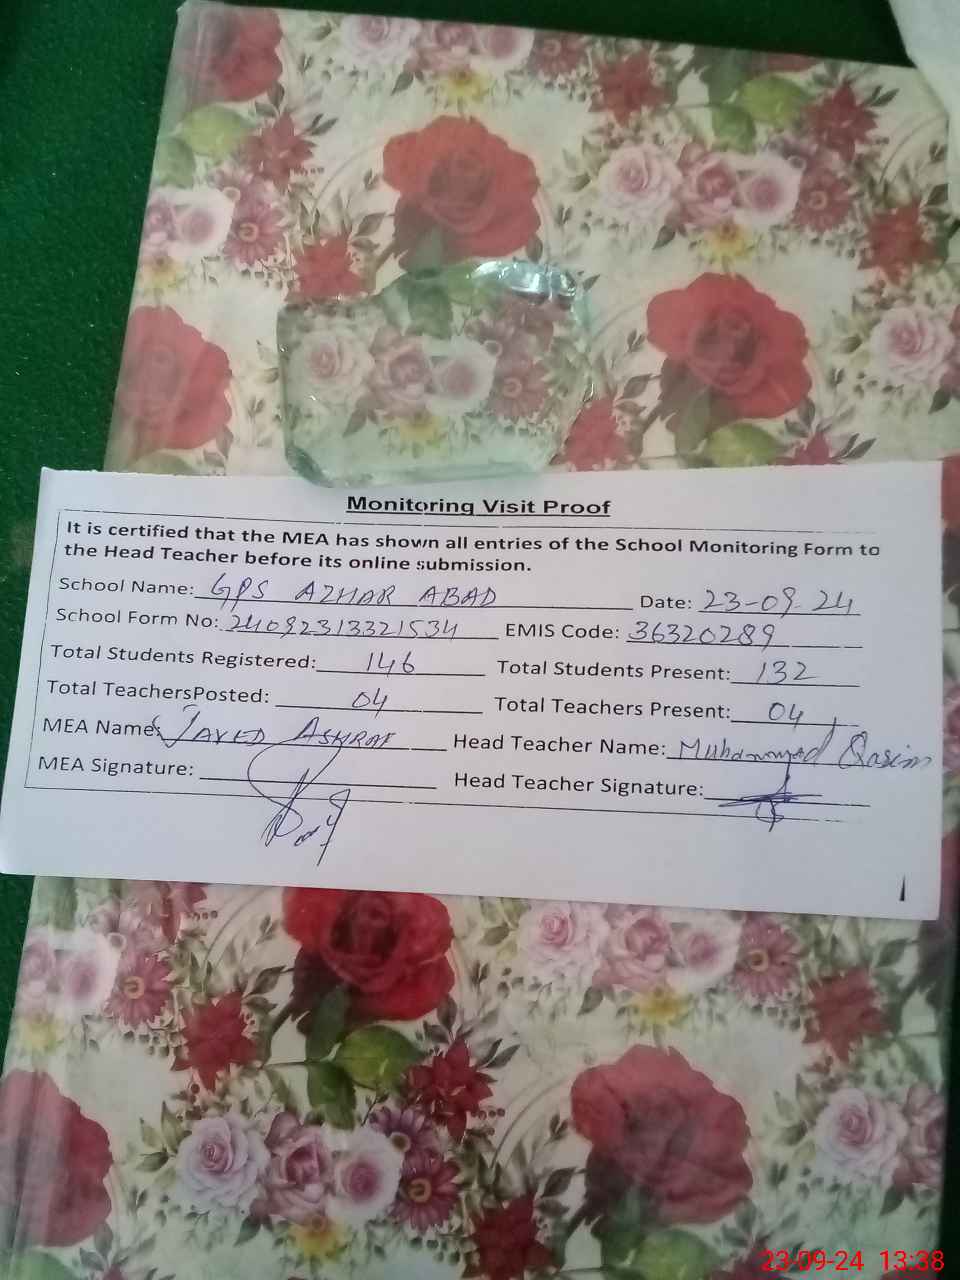 Monitoring Visit Proof
It is certified that the MEA has shown all entries of the School Monitoring Form to
the Head Teacher before its online submission.
School Name: GPS AZHAR ABAD Date: 23-09-24
School Form No: 240923133321534 EMIS Code: 36320289
Total Students Registered: 146 Total Students Present: 132
Total TeachersPosted: 04 Total Teachers Present: 04
MEA Name: JAVED ASHRAF Head Teacher Name: Muhammad Qasim
MEA Signature: Head Teacher Signature:
23-09-24 13:38